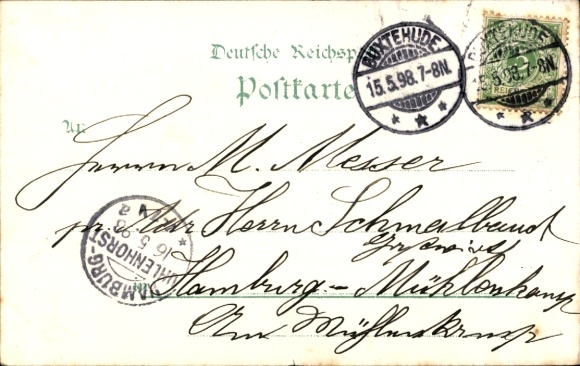 Deutsche Reichsp
Postkarte
BUXTEHUDE
15.5.98.7-8N.
BUXTEHUDE
15.5.98.7-8N.
REICHSP
An
Herrn M. Messer
pr. Adr Herrn Schmalbandt
Hamburg - Mühlenkamp
Am Mühlenkamp
HAMBURG-
UHLENHORST
16.5.98